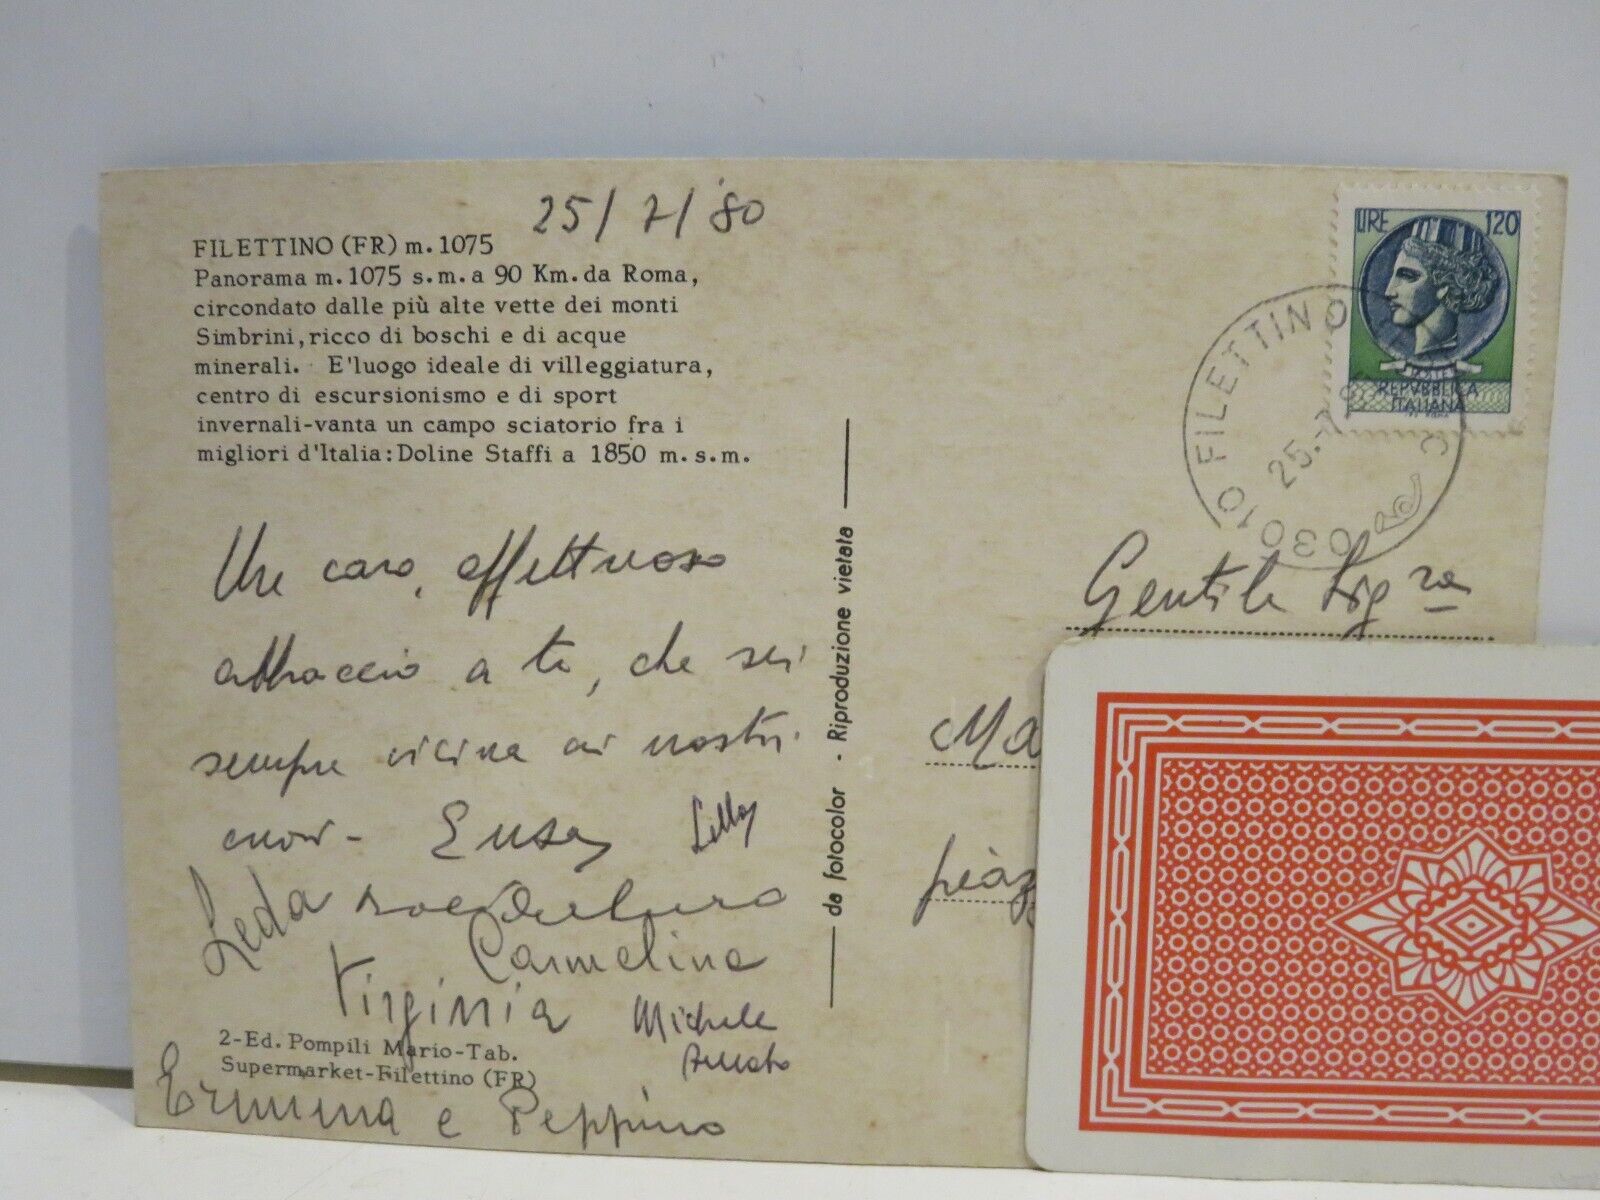 25/7/'80
FILETTINO (FR) m. 1075
Panorama m. 1075 s.m. a 90 Km. da Roma,
circondato dalle più alte vette dei monti
Simbrini, ricco di boschi e di acque
minerali. E'luogo ideale di villeggiatura,
centro di escursionismo e di sport
invernali-vanta un campo sciatorio fra i
migliori d'Italia: Doline Staffi a 1850 m. s. m.
Un caro, affettuoso
abbraccio a te, che sei
sempre vicina ai nostri
cuori - Enza Lilly
Leda
Carmelina
Virginia Michele
Amato
2-Ed. Pompili Mario-Tab.
Supermarket-Filettino (FR)
Erminia e Peppino
da fotocolor - Riproduzione vietata
LIRE 120
REPVBBLICA
ITALIANA
03010 FILETTINO
25.-7
Gentile Sig.ra
Ma
piaz